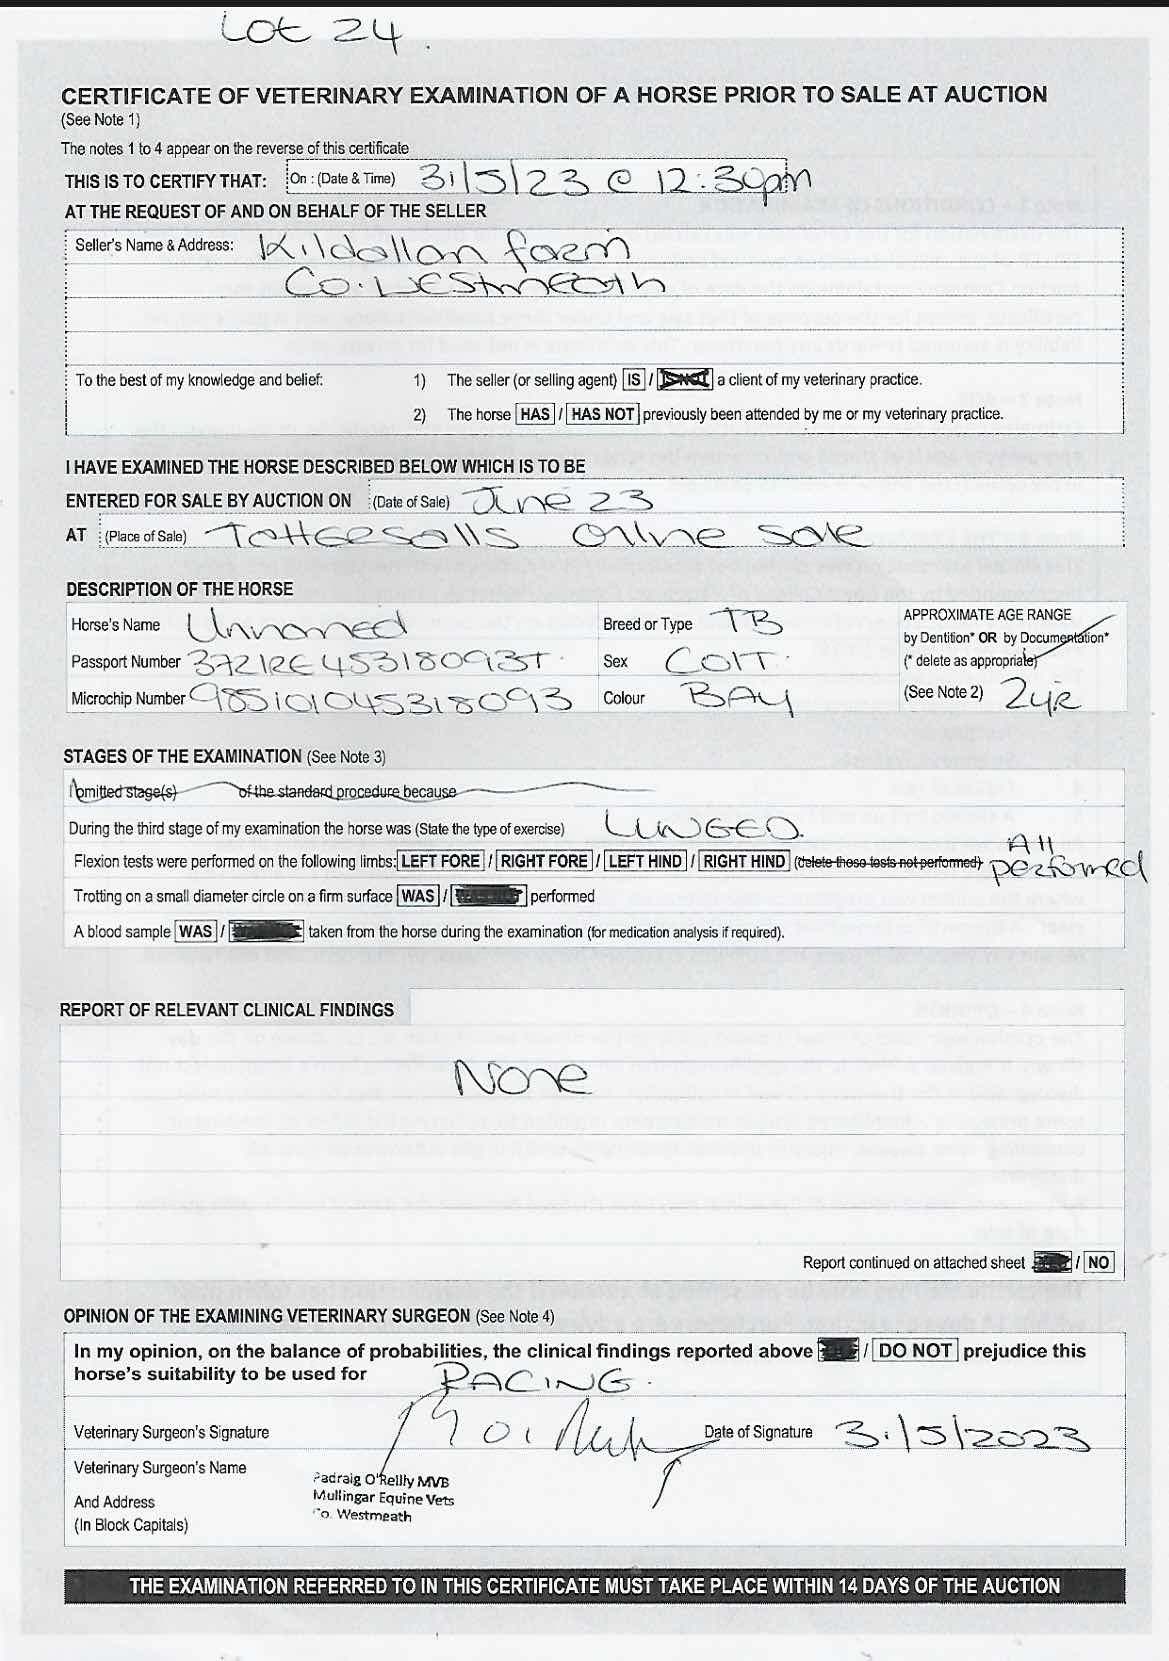 Lot 24.
CERTIFICATE OF VETERINARY EXAMINATION OF A HORSE PRIOR TO SALE AT AUCTION
(See Note 1)
The notes 1 to 4 appear on the reverse of this certificate
THIS IS TO CERTIFY THAT: On : (Date & Time) 31/5/23 @ 12:30pm
AT THE REQUEST OF AND ON BEHALF OF THE SELLER
Seller's Name & Address: Kildallan farm
Co. Westmeath
To the best of my knowledge and belief: 1) The seller (or selling agent) IS / IS NOT a client of my veterinary practice.
2) The horse HAS / HAS NOT previously been attended by me or my veterinary practice.
I HAVE EXAMINED THE HORSE DESCRIBED BELOW WHICH IS TO BE
ENTERED FOR SALE BY AUCTION ON (Date of Sale) June 23
AT (Place of Sale) Tattersalls Online Sale
DESCRIPTION OF THE HORSE
Horse's Name Unnamed Breed or Type TB APPROXIMATE AGE RANGE
by Dentition* OR by Documentation*
Passport Number 372IRE45318093T. Sex COLT. (* delete as appropriate)
Microchip Number 985101045318093 Colour BAY (See Note 2) 2yr
STAGES OF THE EXAMINATION (See Note 3)
I omitted stage(s) of the standard procedure because
During the third stage of my examination the horse was (State the type of exercise) LUNGED.
Flexion tests were performed on the following limbs: LEFT FORE / RIGHT FORE / LEFT HIND / RIGHT HIND (delete those tests not performed) All performed
Trotting on a small diameter circle on a firm surface WAS / performed
A blood sample WAS / taken from the horse during the examination (for medication analysis if required).
REPORT OF RELEVANT CLINICAL FINDINGS
None
Report continued on attached sheet / NO
OPINION OF THE EXAMINING VETERINARY SURGEON (See Note 4)
In my opinion, on the balance of probabilities, the clinical findings reported above / DO NOT prejudice this
horse's suitability to be used for RACING.
Veterinary Surgeon's Signature Date of Signature 31/5/2023
Veterinary Surgeon's Name
Padraig O'Reilly MVB
Mullingar Equine Vets
And Address
Co. Westmeath
(In Block Capitals)
THE EXAMINATION REFERRED TO IN THIS CERTIFICATE MUST TAKE PLACE WITHIN 14 DAYS OF THE AUCTION